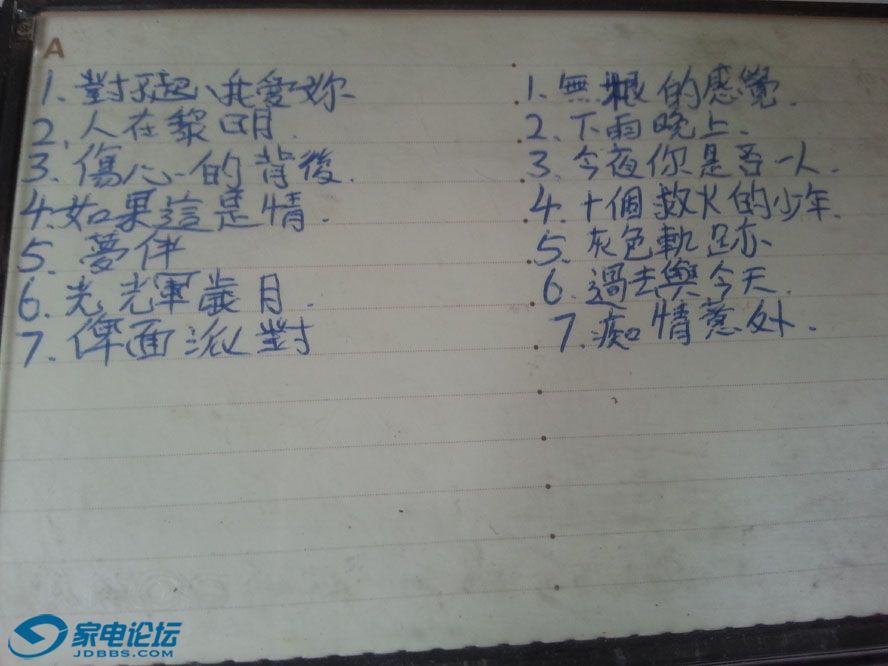 A
1. 對不起、我愛妳
2. 人在黎明.
3. 傷心的背後.
4. 如果這是情.
5. 夢伴
6. 光輝歲月.
7. 俾面派對
1. 無根的感覺.
2. 下雨晚上.
3. 今夜你是否一人.
4. 十個救火的少年.
5. 灰色軌跡
6. 過去與今天.
7. 痴情意外.
家电论坛
JDBBS.COM